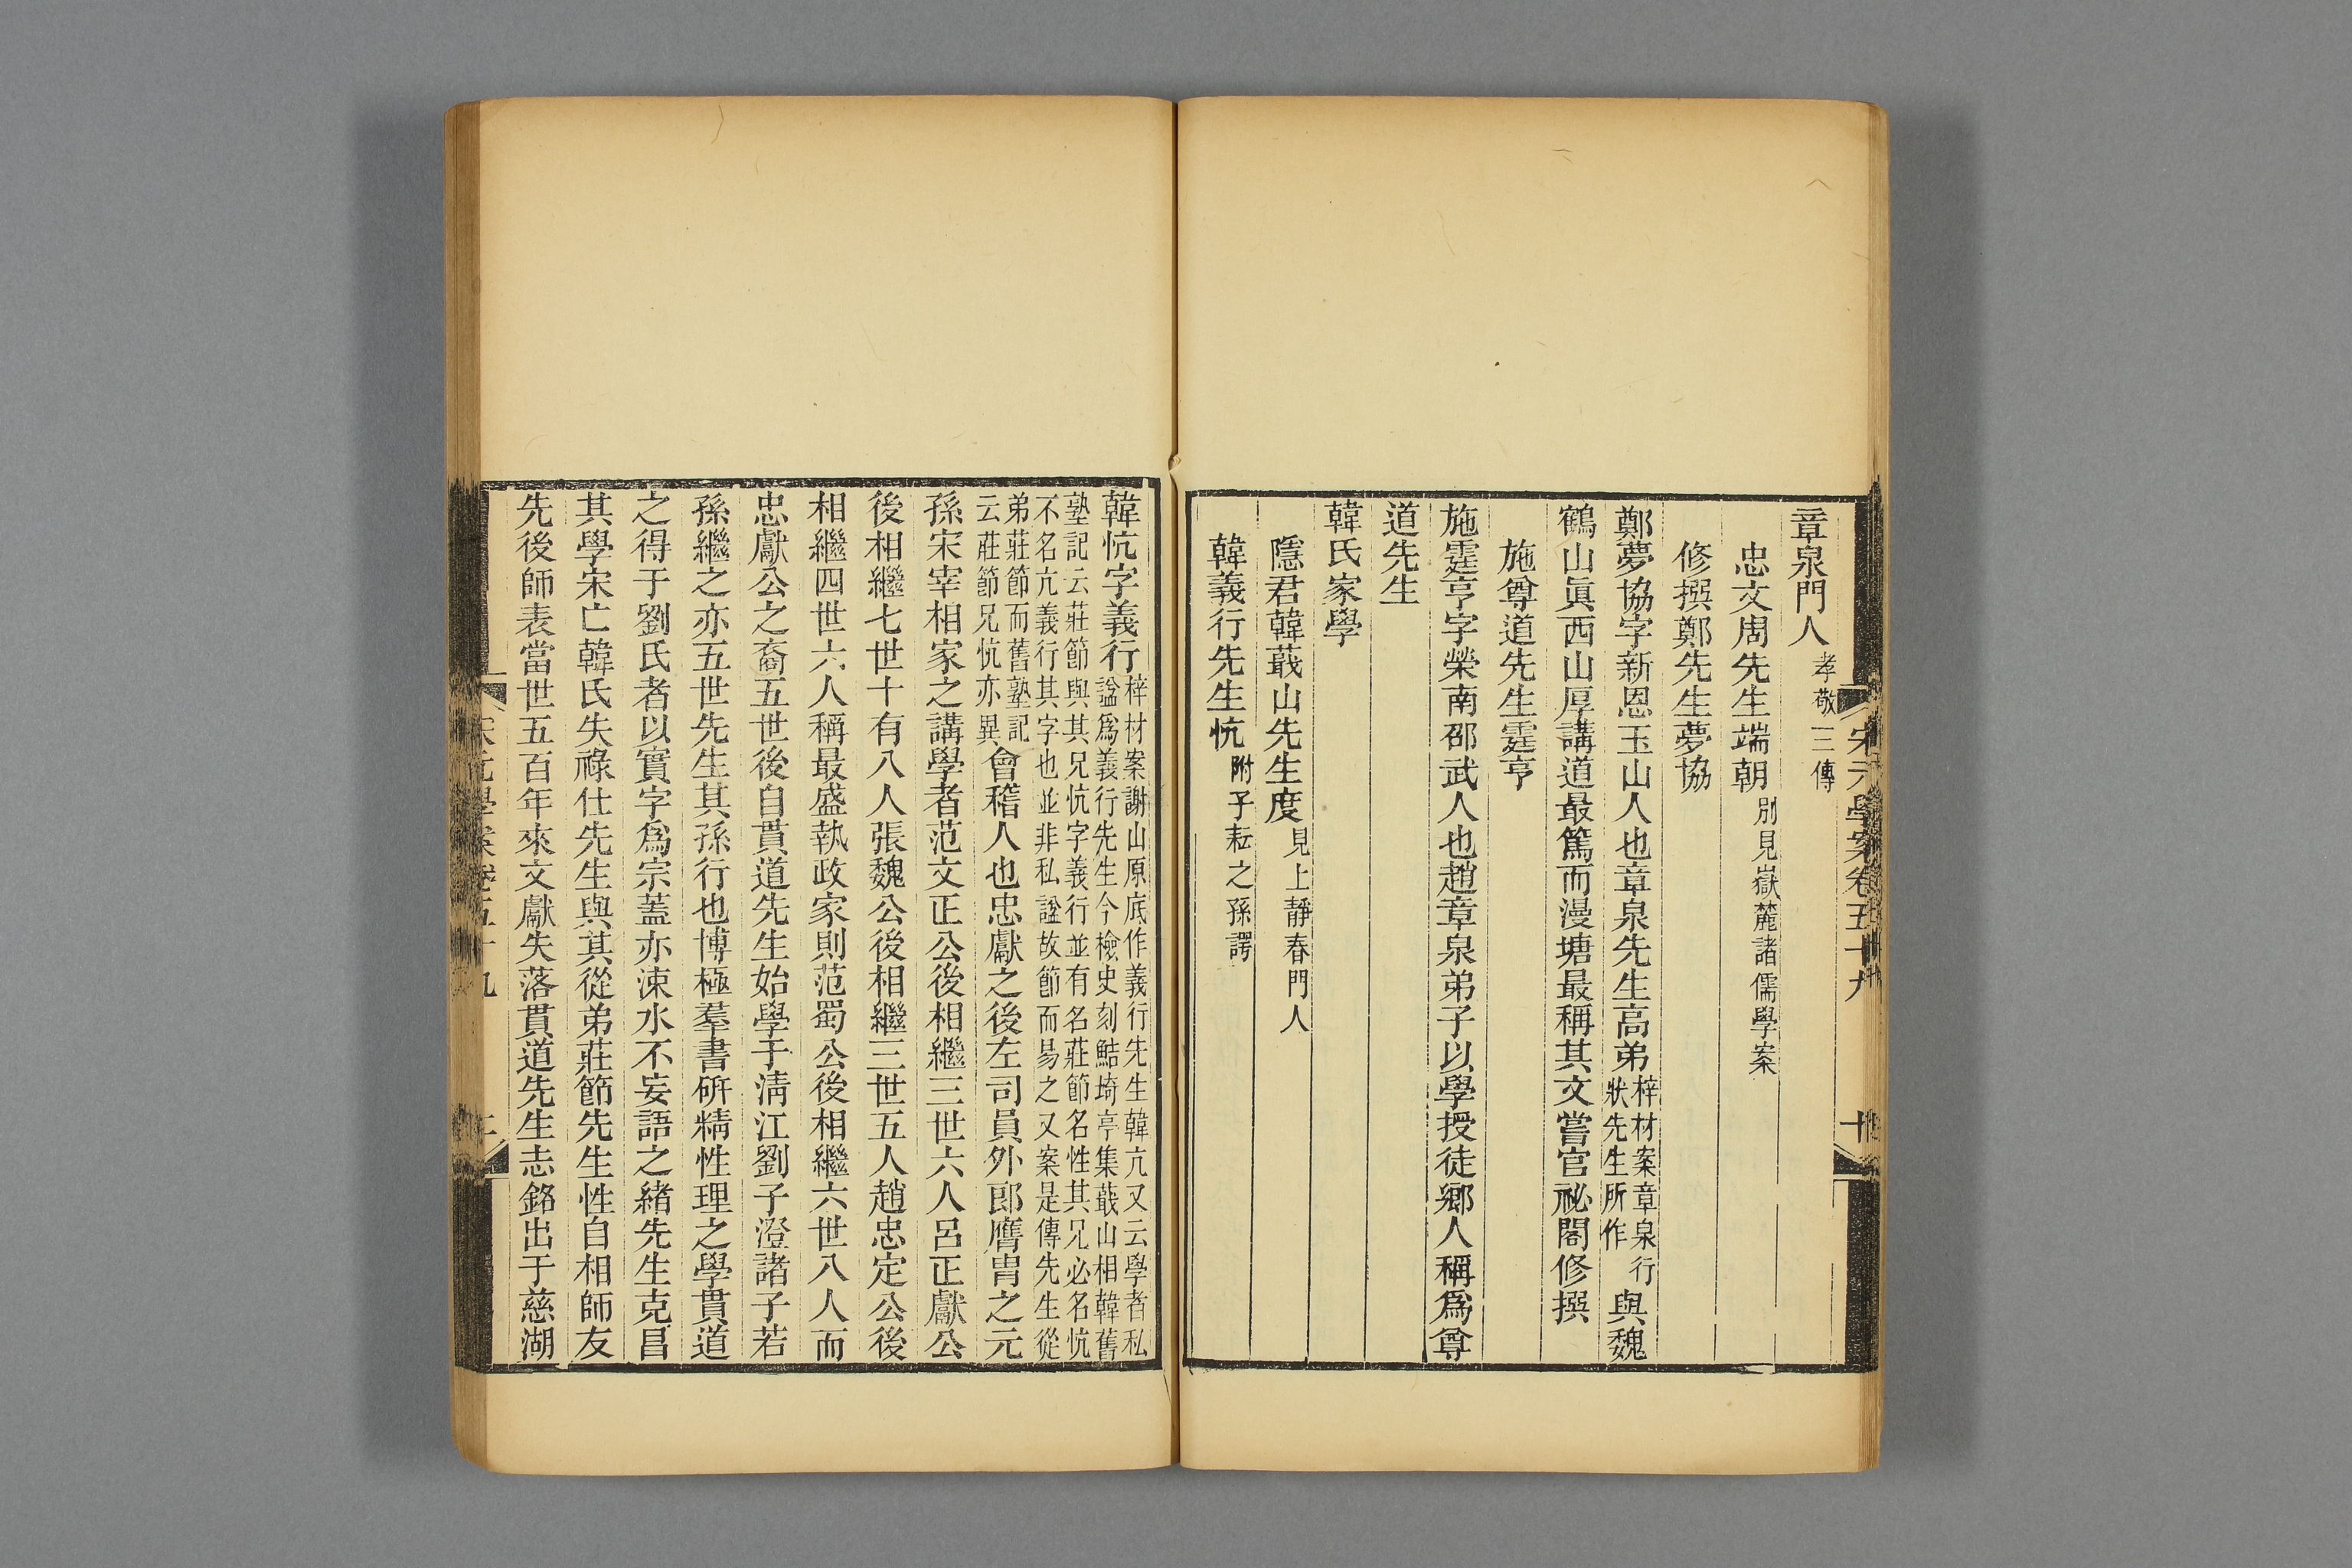 章泉門人孝敬三傳
忠文周先生端朝別見嶽麓諸儒學案
修撰鄭先生夢協
鄭夢協字新恩玉山人也章泉先生高弟梓材案章泉行狀先生所作與魏
鶴山眞西山厚講道最篤而漫塘最稱其文嘗官祕閣修撰
施尊道先生霆亨
施霆亨字榮南邵武人也趙章泉弟子以學授徒鄉人稱爲尊
道先生
韓氏家學
隱君韓蕺山先生度見上靜春門人
韓義行先生忼附子耘之孫諤
韓忼字義行梓材案謝山原底作義行先生韓亢又云學者私
諡爲義行先生今檢史刻鮚埼亭集蕺山相韓舊
塾記云莊節與其兄忼字義行並有名莊節名性其兄必名忼
不名亢義行其字也並非私諡故節而易之又案是傳先生從
弟莊節而舊塾記
云莊節兄忼亦異會稽人也忠獻之後左司員外郎膺胄之元
孫宋宰相家之講學者范文正公後相繼三世六人呂正獻公
後相繼七世十有八人張魏公後相繼三世五人趙忠定公後
相繼四世六人稱最盛執政家則范蜀公後相繼六世八人而
忠獻公之裔五世後自貫道先生始學于淸江劉子澄諸子若
孫繼之亦五世先生其孫行也博極羣書硏精性理之學貫道
之得于劉氏者以實字爲宗蓋亦涑水不妄語之緖先生克昌
其學宋亡韓氏失祿仕先生與其從弟莊節先生性自相師友
先後師表當世五百年來文獻失落貫道先生志銘出于慈湖
宋元學案卷五十九
十